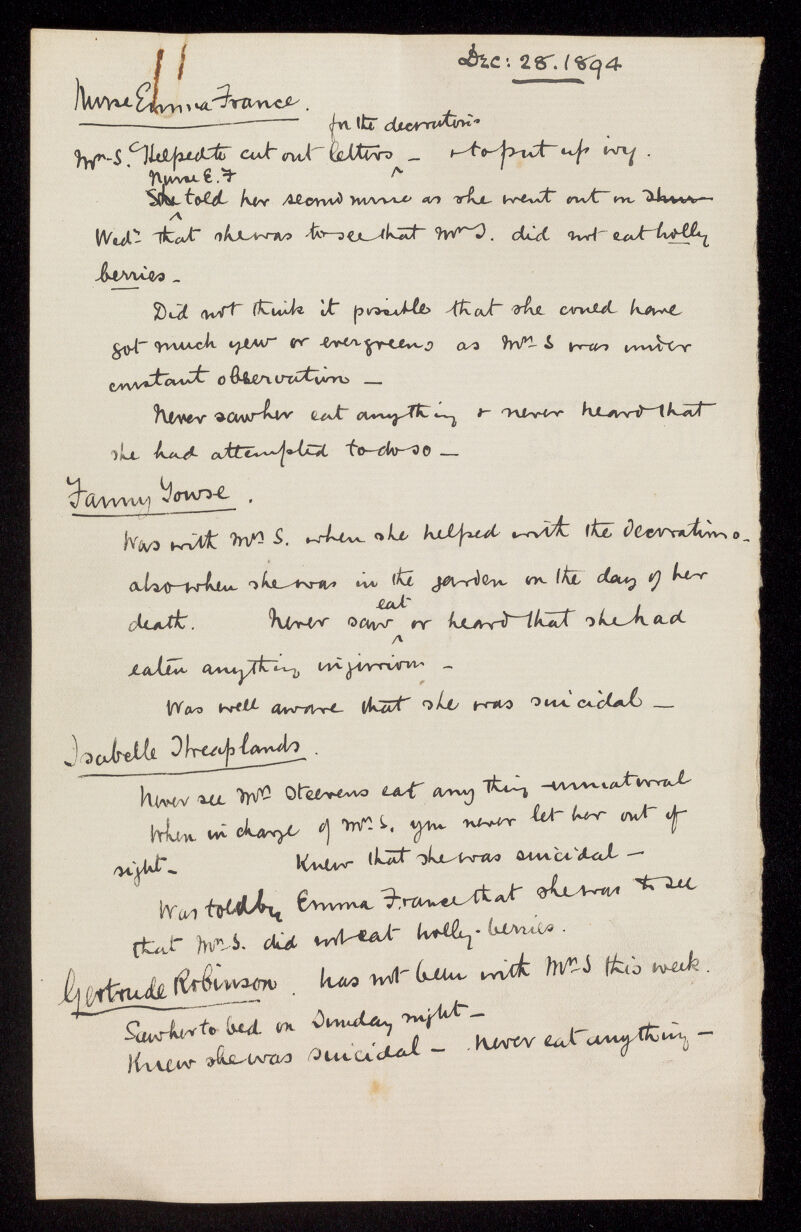 Dec: 28. 1894
Nurse Emma France.
for the decorations
Mrs S. Helped to cut out letters – & to put up ivy.
Nurse E. F
She told her second nurse as she went out on
Wed: that she was to see that Mrs S. did not eat holly
berries –
Did not think it possible that she could have
got much yew or evergreens as Mrs S was under
constant observation –
Never saw her eat anything & never heard that
she had attempted to do so –
Fanny Towse.
Was with Mrs S. when she helped with the decorations –
also when she was in the garden on the day of her
eat
death. Never saw or heard that she had
eaten anything injurious –
Was well aware that she was suicidal –
Isabelle Threaplands.
Never see Mrs Steevens eat any thing unnatural
When in charge of Mrs S. you never let her out of
sight – Knew that she was suicidal –
Was told by Emma France that she was to see
that Mrs S. did not eat holly-berries.
Gertrude Robinson. has not been with Mrs S this week.
Saw her to bed on Sunday night –
Knew she was suicidal – never eat anything –